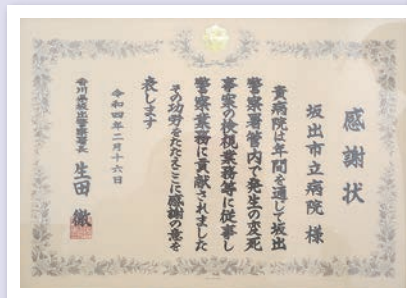 感謝状
坂出市立病院 様
貴病院は年間を通じて坂出
警察署管内で発生の変死
事案の検視業務等に従事し
警察業務に貢献されました
その功労をたたえここに感謝の意を
表します
令和四年二月十六日
香川県坂出警察署長 生田 徹